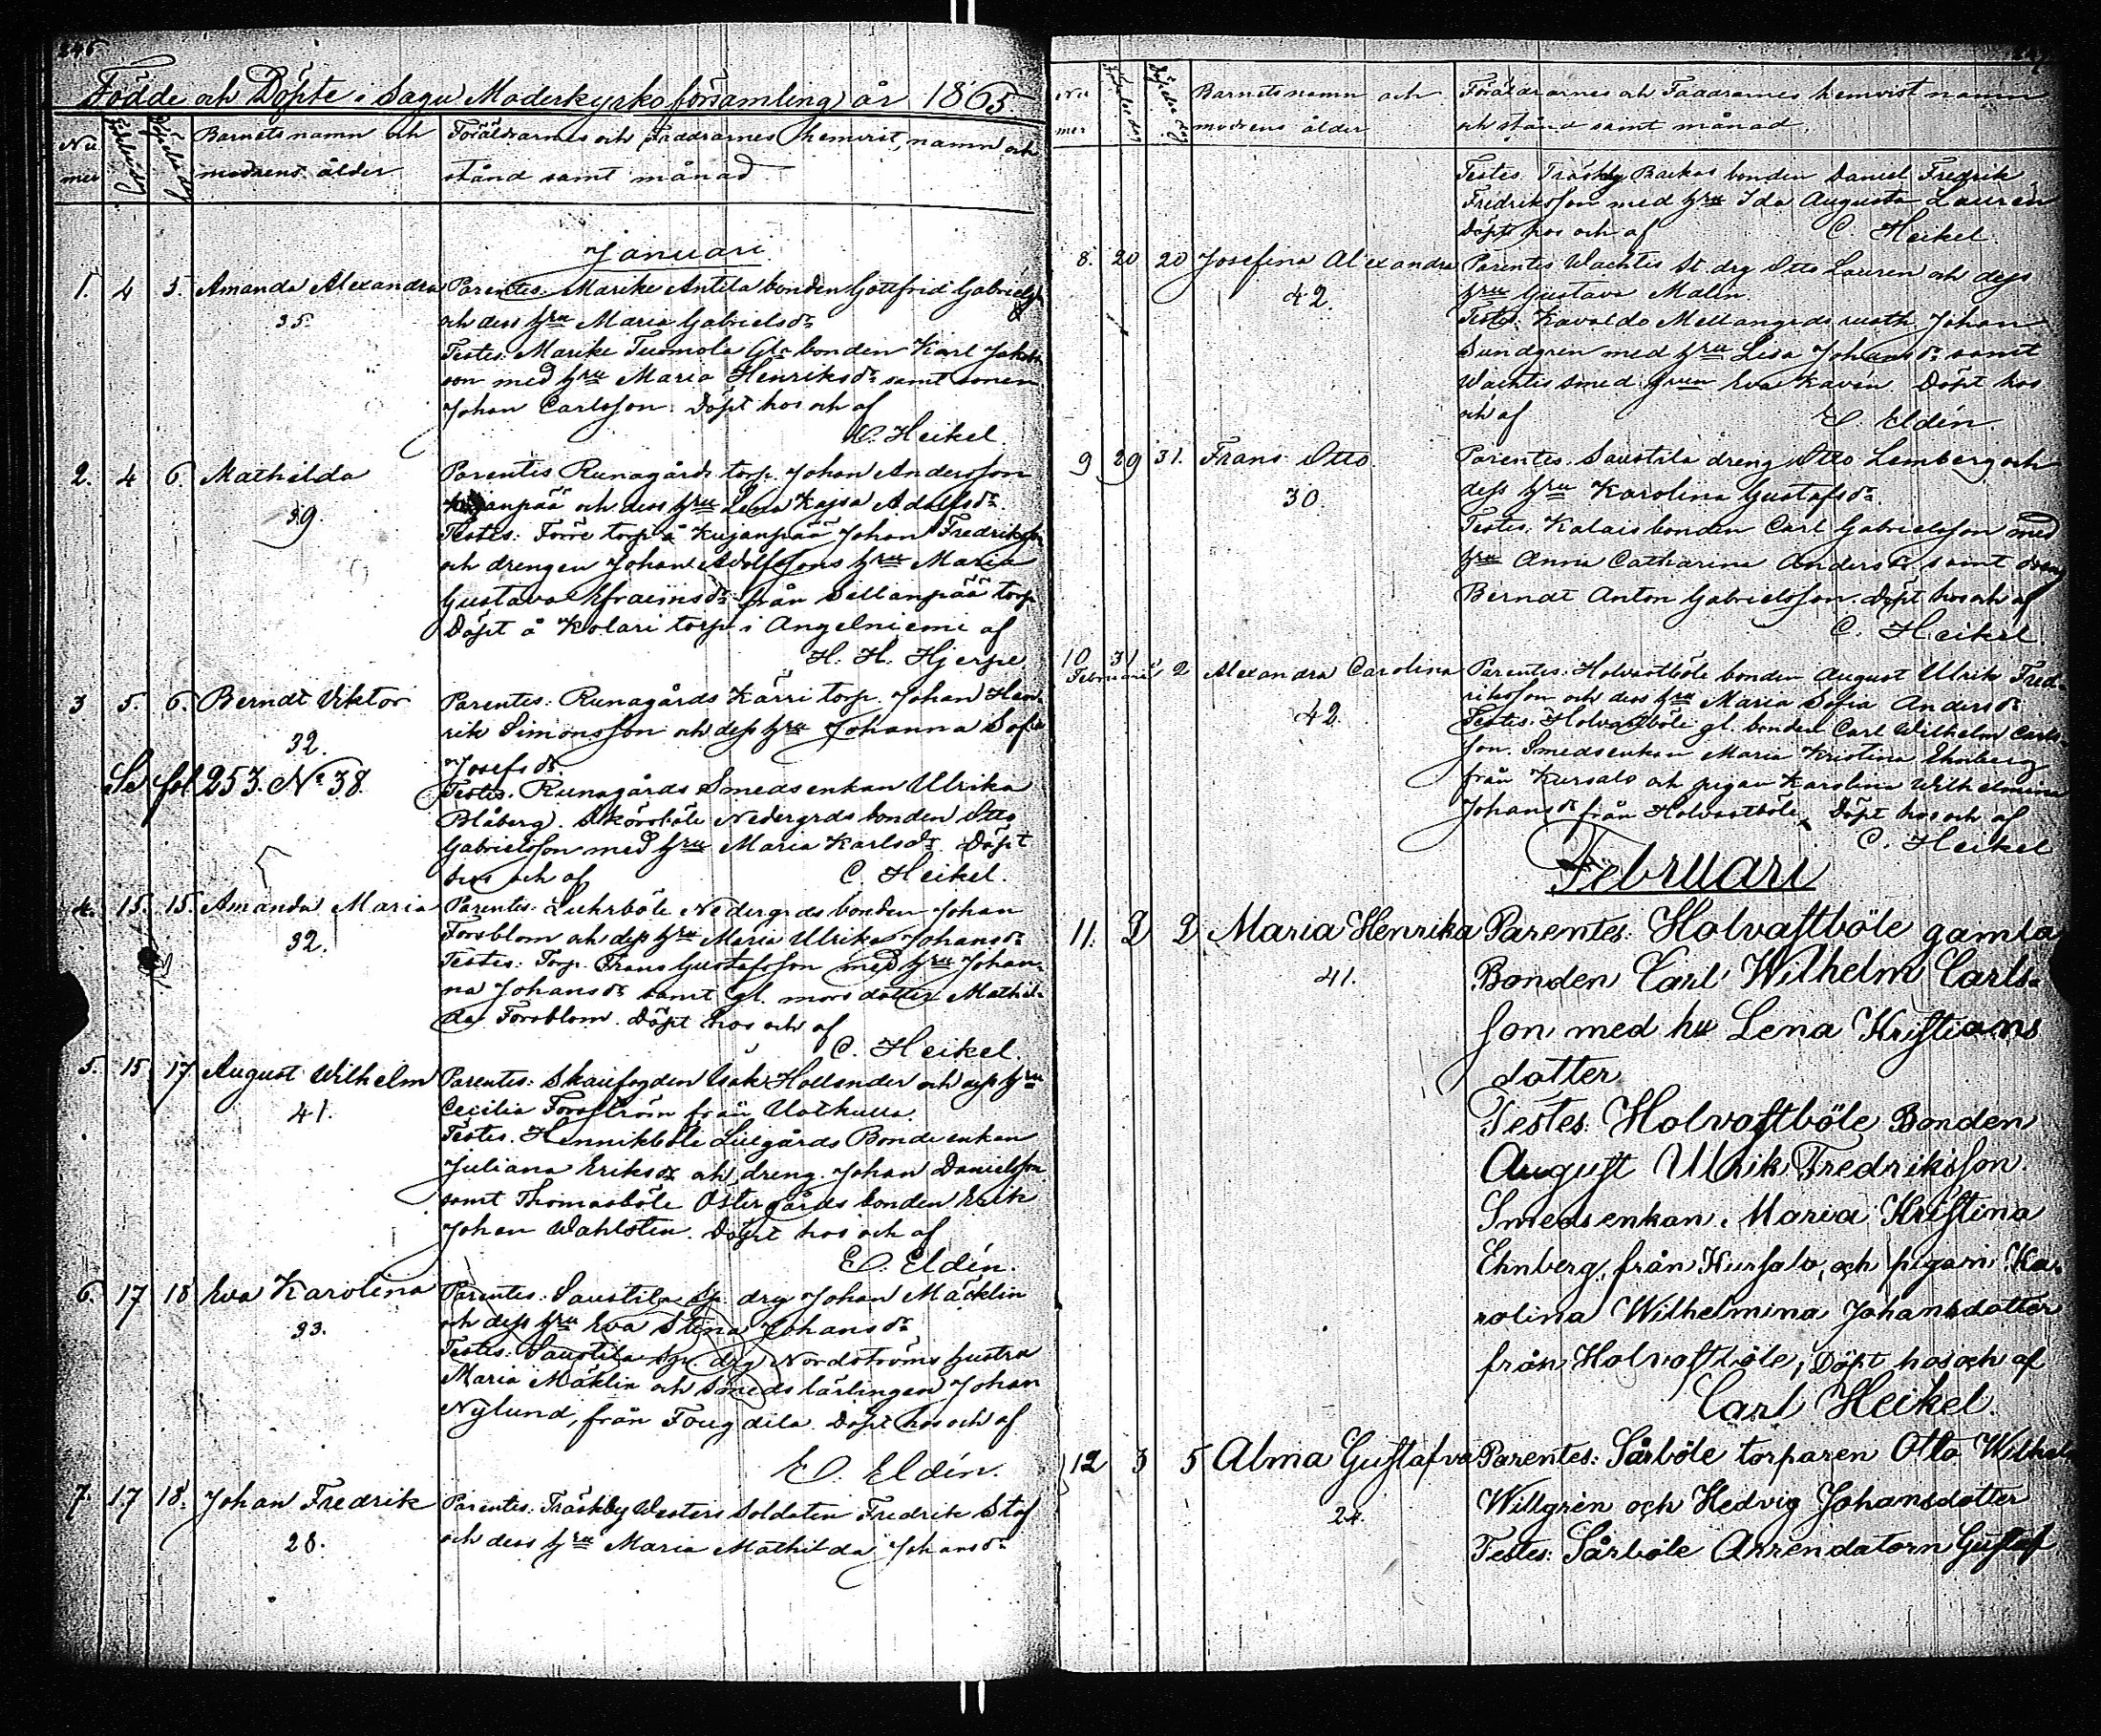 246.
Födde och Döpte i Sagu Moderkyrko församling år 1865.
Nu
mer
Födelsedag
Döpelsedag
Barnets namn och
modrens ålder
Föräldrarnes och Faddrarnes hemvist, namn och
stånd samt månad
Januari
1. 4 5. Amanda Alexandra
35.
Parentes: Marike Antila bonden Gottfrid Gabrielss
och dess hru Maria Gabrielsdr
Testes: Marike Tuomola Gla bonden Karl Jakobs
son med hru Maria Henriksdr samt sonen
Johan Carlsson. Döpt hos och af
C. Heikel.
2. 4 6. Mathilda
39.
Parentes Runagårds torp. Johan Andersson
Kujanpää och dess hru Lena Kajsa Adolfsdr.
Testes: Förre torp å Kujanpää Johan Fredriksson
och drengen Johan Adolfssons hru Maria
Gustava Efraimsdr från Sillanpää torp
Döpt å Kolari torp i Angelniemi af
H. H. Hjerpe.
3 5. 6. Berndt Viktor
32.
Se fol 253. No 38.
Parentes: Runagårds Kärri torp. Johan Hen-
rik Simonsson och dess hru Johanna Sofia
Josefsdr.
Testes. Runagårds Smedsenkan Ulrika
Blåberg. Skörsböle Nedergrds bonden Otto
Gabrielsson med hru Maria Karlsdr. Döpt
hos och af C. Heikel.
4. 15. 15. Amanda Maria
32.
Parentes: Luhrböle Nedergrds bonden Johan
Forsblom och dess hru Maria Ulrika Johansdr
Testes: Torp. Frans Gustafsson med hru Johan-
na Johansdr samt gl. mors dotter Mathil-
da Forsblom. Döpt hos och af
C. Heikel.
5. 15 17 August Wilhelm
41.
Parentes: Skaufogden Isak Hollender och dess hru
Cecilia Forsström från Uotkulla.
Testes. Hennikböle Lillgårds Bondeenkan
Juliana Eriksdr och dreng. Johan Danielsson
samt Thomasböle Östergårds bonden Erik
Johan Wahlsten. Döpt hos och af
C. Eldén.
6. 17 18 Eva Karolina
33.
Parentes: Saustila Sp. drg Johan Mäcklin
och dess hru Eva Stina Johansdr
Testes: Saustila Sp. drg Nordströms hustru
Maria Mäklin och smedslärlingen Johan
Nylund, från Fougdila. Döpt hos och af
C. Eldén.
7. 17 18. Johan Fredrik
28.
Parentes: Träskby Westers Soldaten Fredrik Staf
och dess hru Maria Mathilda Johansdr
247.
Nu
mer
Födelsedag
Döpelsedag
Barnets namn och
modrens ålder
Föräldrarnes och Faddrarnes hemvist namn
och stånd samt månad.
Testes. Träskby Backas bonden Daniel Fredrik
Fredriksson med hru Ida Augusta Laurén
Döpt hos och af C. Heikel.
8. 20 20 Josefina Alexandra
42.
Parentes Wachtis St. drg Otto Lauren och dess
hru Gustava Malin.
Testes: Kavaldo Mellangrds rusth. Johan
Sundgren med hru Lisa Johansdr samt
Wachtis smed hrun Eva Kavén. Döpt hos
och af C. Eldén.
9 29 31. Frans Otto.
30.
Parentes. Saustila dreng Otto Lemberg och
dess hru Karolina Gustafsdr.
Testes. Kalais bonden Carl Gabrielsson med
hru Anna Catharina Andersdr samt dreng
Berndt Anton Gabrielsson. Döpt hos och af
C. Heikel.
10 31 Februarii 2 Alexandra Carolina
42.
Parentes: Holvastböle bonden August Ulrik Fred-
riksson och dess hru Maria Sofia Andersdr
Testes. Holvastböle gl. bonden Carl Wilhelm Carls-
son. Smedsenkan Maria Kristina Ehnberg
från Kursalo och pigan Karolina Wilhelmina
Johansdr från Holvastböle. Döpt hos och af
C. Heikel
Februari
11. 2 2 Maria Henrika
41.
Parentes: Holvastböle gamla
Bonden Carl Wilhelm Carls-
son med hu Lena Kristians
dotter
Testes: Holvastböle Bonden
August Ulrik Fredriksson.
Smedsenkan. Maria Kristina
Ehnberg, från Kursalo, och pigan Ka-
rolina Wilhelmina Johansdotter
från Holvastböle, Döpt hos och af
Carl Heikel.
12 3 5 Alma Gustafva
24.
Parentes: Sårböle torparen Otto Wilhelm
Willgrén och Hedvig Johansdotter
Testes: Sårböle Arrendatorn Gustaf